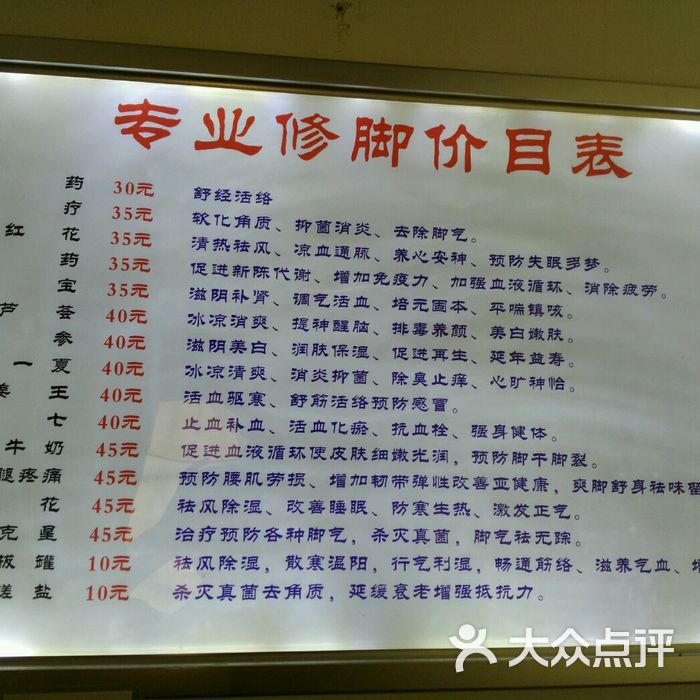 专业修脚价目表
药 30元 舒经活络
疗 35元 软化角质、抑菌消炎、去除脚气。
红花 35元 清热祛风、凉血通脉、养心安神、预防失眠多梦。
药 35元 促进新陈代谢、增加免疫力、加强血液循环、消除疲劳。
宝 35元 滋阴补肾、调气活血、培元固本、平喘镇咳。
芦荟 40元 冰凉消爽、提神醒脑、排毒养颜、美白嫩肤。
参 40元 滋阴美白、润肤保湿、促进再生、延年益寿。
一夏 40元 冰凉清爽、消炎抑菌、除臭止痒、心旷神怡。
姜王 40元 活血驱寒、舒筋活络预防感冒。
七 40元 止血补血、活血化瘀、抗血栓、强身健体。
牛奶 45元 促进血液循环使皮肤细嫩光润，预防脚干脚裂。
腿疼痛 45元 预防腰肌劳损、增加韧带弹性改善亚健康，爽脚舒身祛味留
花 45元 祛风除湿、改善睡眠、防寒生热、激发正气。
克星 45元 治疗预防各种脚气，杀灭真菌，脚气祛无踪。
拔罐 10元 祛风除湿，散寒温阳，行气利湿，畅通筋络、滋养气血、增
搓盐 10元 杀灭真菌去角质，延缓衰老增强抵抗力。
大众点评